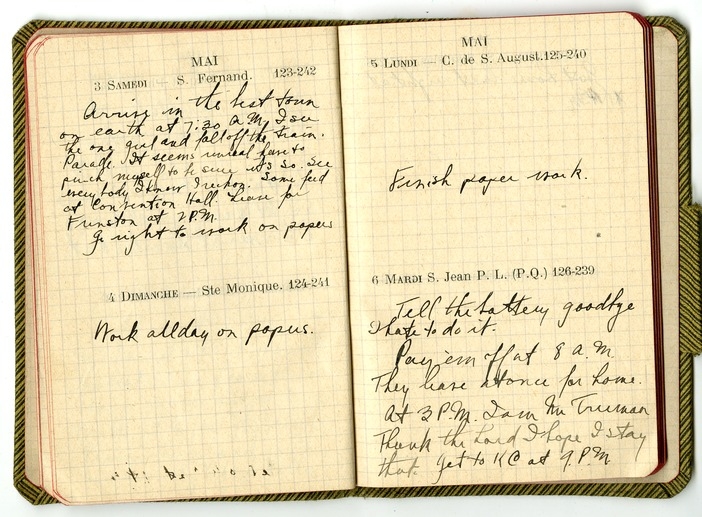 MAI
3 SAMEDI — S. Fernand. 123-242
Arrive in the best town
on earth at 7:30 A.M. I see
the one girl and fall off the train.
Parade. It seems unreal have to
pinch myself to be sure it's so. See
everybody I know I reckon. Some feed
at Convention Hall. Leave for
Funston at 2 P.M.
Go right to work on papers
4 DIMANCHE — Ste Monique. 124-241
Work all day on papers.
MAI
5 LUNDI — C. de S. August. 125-240
Finish paper work.
6 MARDI S. Jean P. L. (P.Q.) 126-239
Tell the battery goodbye
I hate to do it.
Pay 'em off at 8 A.M.
They leave at once for home.
At 3 P.M. I am Mr Truman
Thank the Lord I hope I stay
that. Get to KC at 9 P.M.